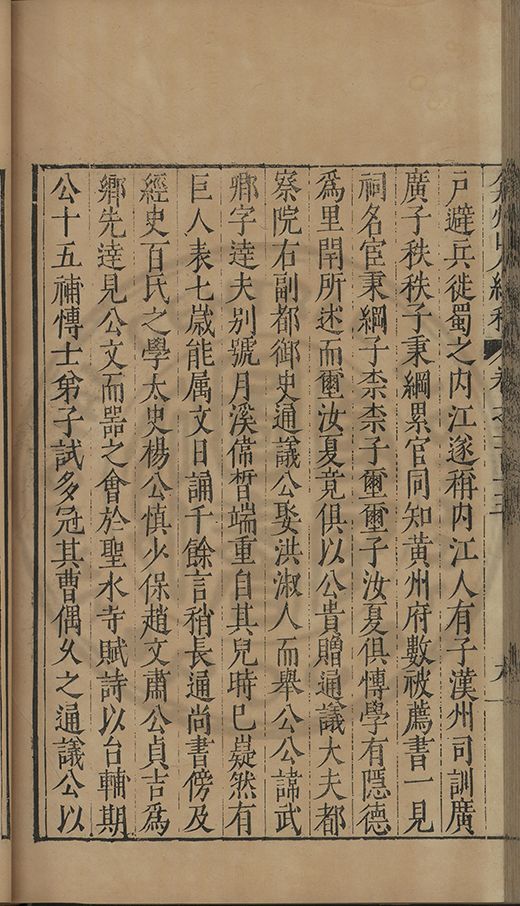 弇州山人續稿 卷之一百三十三 九
戸避兵徙蜀之内江遂稱内江人有子漢州司訓廣
廣子秩秩子秉綱累官同知黄州府數被薦書一見
祠名宦秉綱子柰柰子璽璽子汝夏俱愽學有隱德
爲里閈所述而璽汝夏竟俱以公貴贈通議大夫都
察院右副都御史通議公娶洪淑人而舉公公諱武
卿字逹夫别號月溪偉晳端重自其兒時巳嶷然有
巨人表七嵗能属文日誦千餘言稍長通尚書傍及
經史百氏之學太史楊公慎少保趙文肅公貞吉爲
鄉先逹見公文而器之會於聖水寺賦詩以台輔期
公十五補愽士弟子試多冠其曹偶乆之通議公以